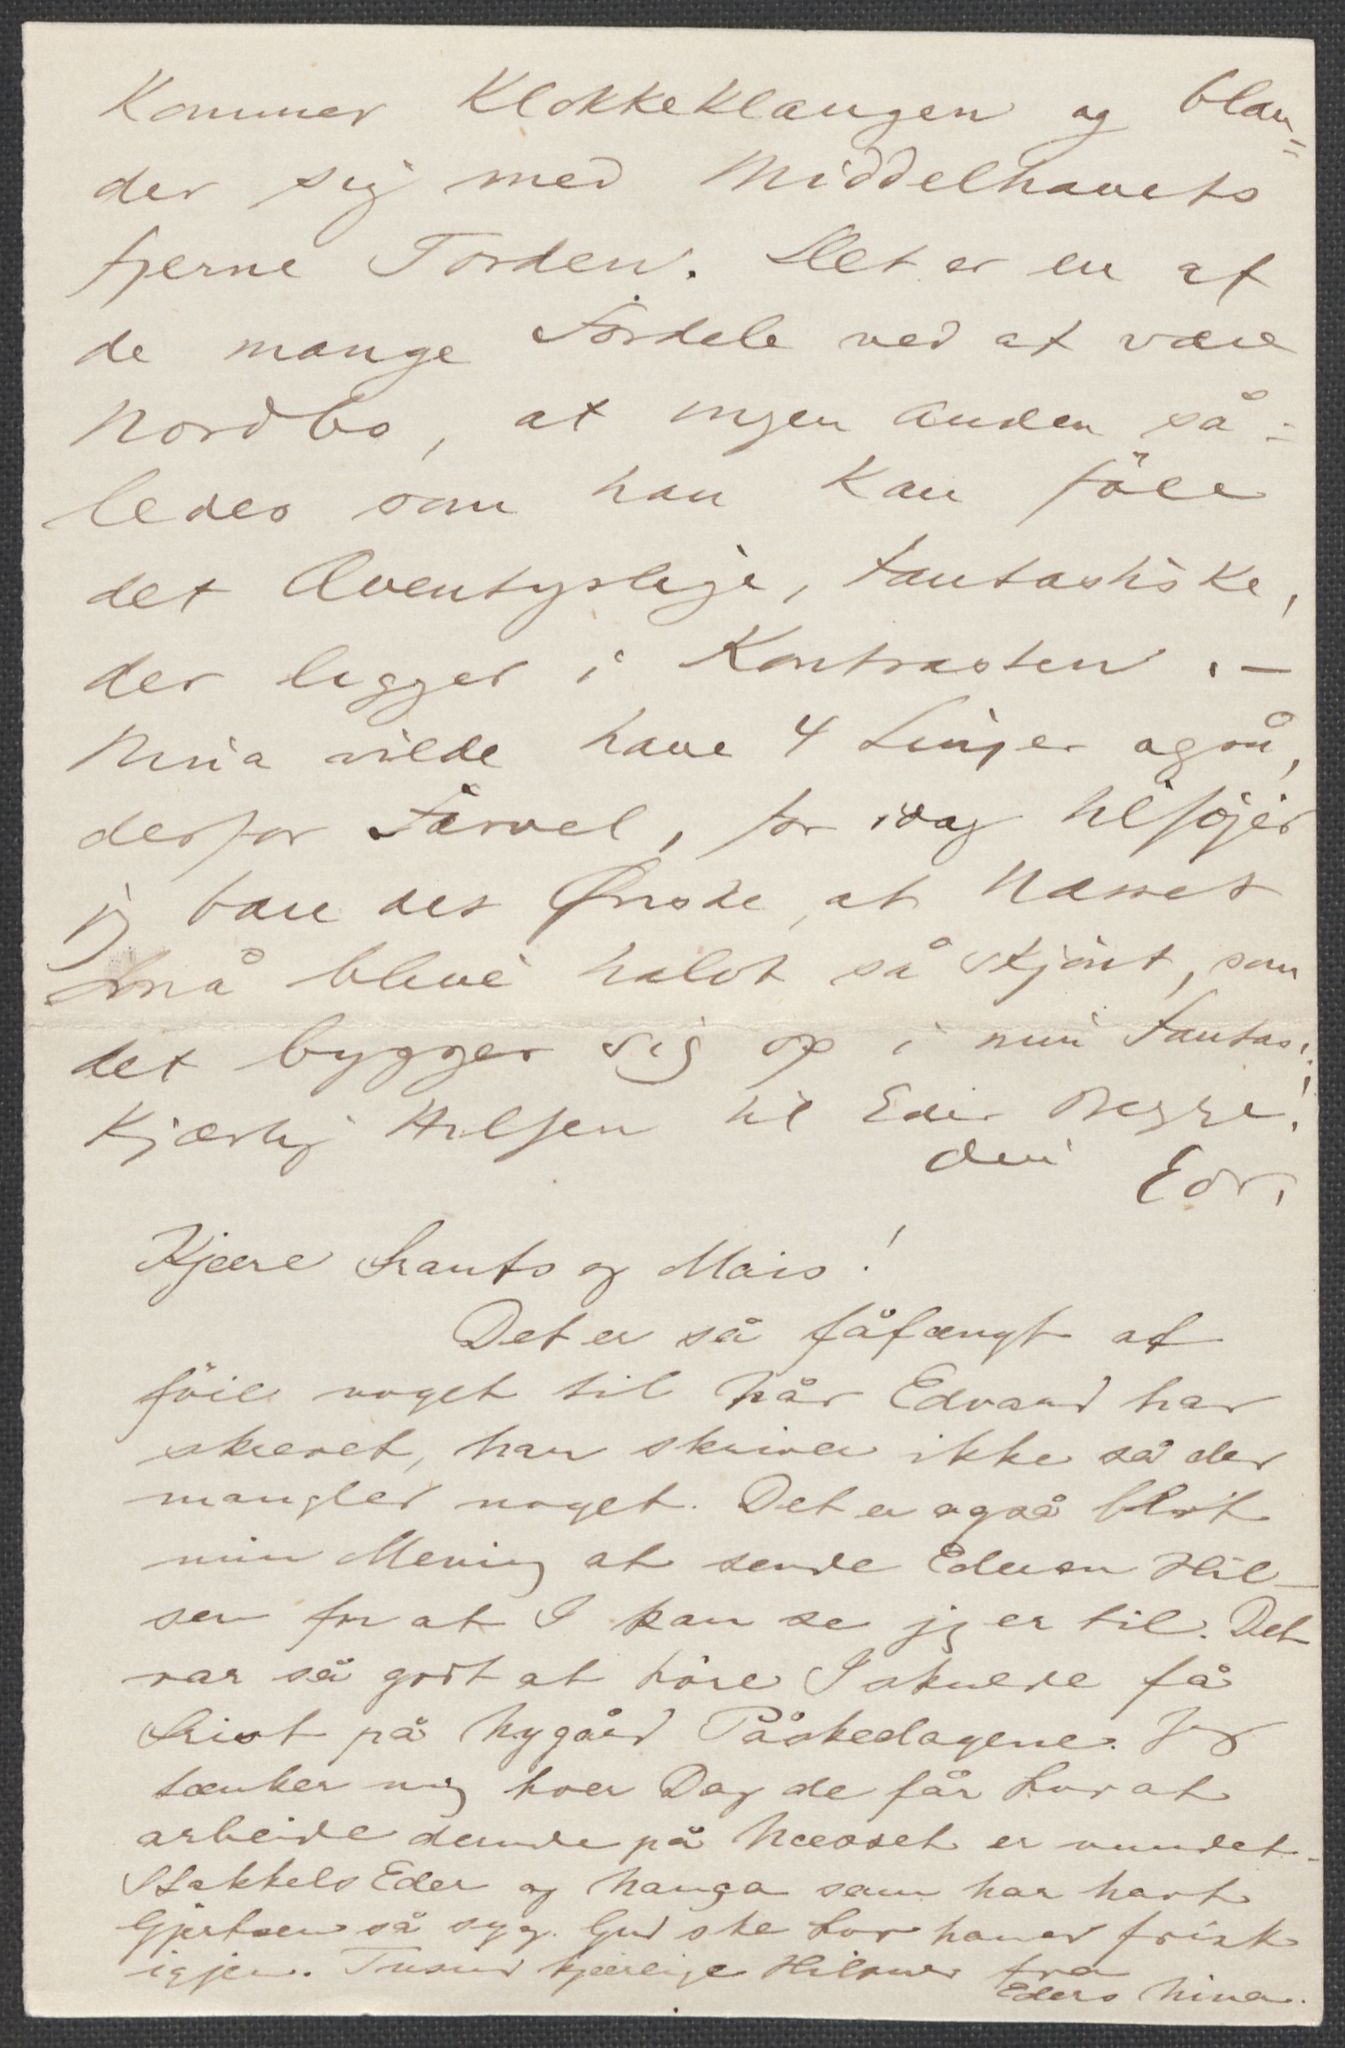 Kommer Klokkeklangen og blan=
der sig med Middelhavets
fjerne Torden. Det er en af
de mange Fordele ved at være
Nordbo, at ingen anden så=
ledes som han kan föle
det Æventyrlige, fantastiske,
der ligger i Kontrasten. –
Nina vilde have 4 Linjer også,
derfor Farvel, for idag tilföjer
jeg bare det Ønske, at Næsset
må blive halvt så skjönt, som
det bygger sig op i min Fantasi.
Kjærlig Hilsen til Eder Begge!
din Edv.
Kjære Frants og Mais!
Det er så fåfængt at
föie noget til når Edvard har
skrevet, han skriver ikke så der
mangler noget. Det er også blot
min Mening at sende Eder en Hil-
sen for at I kan se jeg er til. Det
var så godt at höre I skulde få
Frist på Nygård Påskedagene. Jeg
tænker mig hver Dag de får Lov at
arbeide derude på Næsset er vundet.
Stakkels Eder og Nanga som har havt
Gjertsen så syg. Gud ske Lov han er frisk
igjen. Tusind kjærlige Hilsner fra
Eders Nina.